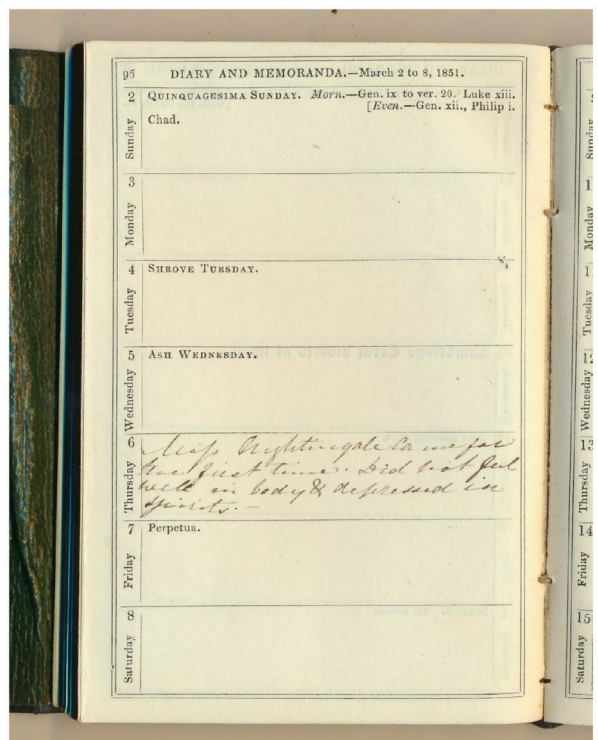 95 DIARY AND MEMORANDA.—March 2 to 8, 1851.
2 Sunday QUINQUAGESIMA SUNDAY. Morn.—Gen. ix to ver. 20. Luke xiii.
[Even.—Gen. xii., Philip i.
Chad.
3 Monday
4 Tuesday SHROVE TUESDAY.
5 Wednesday ASH WEDNESDAY.
6 Thursday Miss Nightingale came for
the first time. Did not feel
well in body & depressed in
spirits. —
7 Friday Perpetua.
8 Saturday
Sunday
Monday
Tuesday
12 Wednesday
13 Thursday
14 Friday
15 Saturday